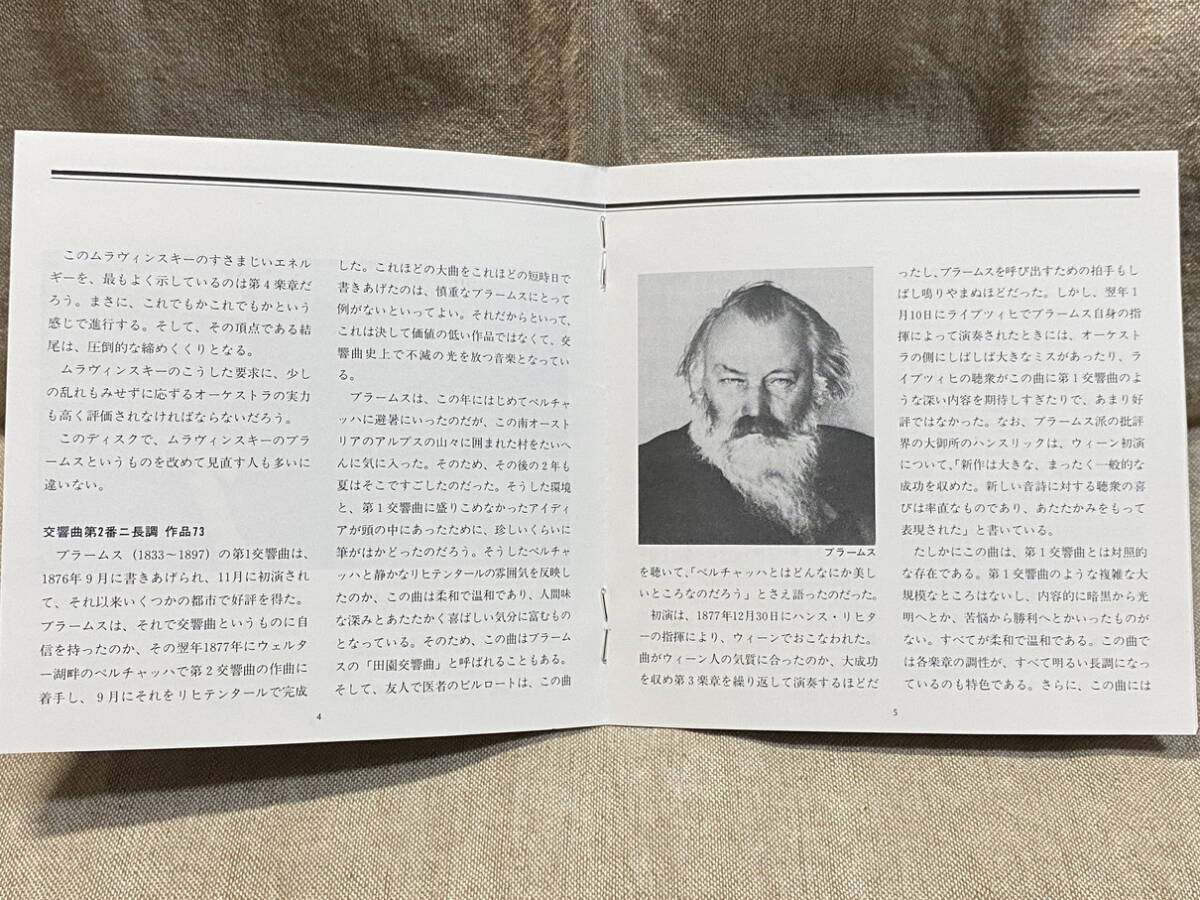 このムラヴィンスキーのすさまじいエネル
ギーを、最もよく示しているのは第4楽章だ
ろう。まさに、これでもかこれでもかという
感じで進行する。そして、その頂点である結
尾は、圧倒的な締めくくりとなる。
ムラヴィンスキーのこうした要求に、少し
の乱れもみせずに応ずるオーケストラの実力
も高く評価されなければならないだろう。
このディスクで、ムラヴィンスキーのブラ
ームスというものを改めて見直す人も多いに
違いない。
交響曲第2番ニ長調 作品73
ブラームス(1833〜1897)の第1交響曲は、
1876年9月に書きあげられ、11月に初演され
て、それ以来いくつかの都市で好評を得た。
ブラームスは、それで交響曲というものに自
信を持ったのか、その翌年1877年にウェルタ
ー湖畔のペルチャッハで第2交響曲の作曲に
着手し、9月にそれをリヒテンタールで完成
4
した。これほどの大曲をこれほどの短時日で
書きあげたのは、慎重なブラームスにとって
例がないといってよい。それだからといって、
これは決して価値の低い作品ではなくて、交
響曲史上で不滅の光を放つ音楽となってい
る。
ブラームスは、この年にはじめてペルチャ
ッハに避暑にいったのだが、この南オースト
リアのアルプスの山々に囲まれた村をたいへ
んに気に入った。そのため、その後の2年も
夏はそこですごしたのだった。そうした環境
と、第1交響曲に盛りこめなかったアイディ
アが頭の中にあったために、珍しいくらいに
筆がはかどったのだろう。そうしたペルチャ
ッハと静かなリヒテンタールの雰囲気を反映し
たのか、この曲は柔和で温和であり、人間味
な深みとあたたかく喜ばしい気分に富むもの
となっている。そのため、この曲はブラーム
スの「田園交響曲」と呼ばれることもある。
そして、友人で医者のビルロートは、この曲
ブラームス
を聴いて、「ペルチャッハとはどんなにか美し
いところなのだろう」とさえ語ったのだった。
初演は、1877年12月30日にハンス・リヒタ
ーの指揮により、ウィーンでおこなわれた。
曲がウィーン人の気質に合ったのか、大成功
を収め第3楽章を繰り返して演奏するほどだ
5
ったし、ブラームスを呼び出すための拍手もし
ばし鳴りやまぬほどだった。しかし、翌年1
月10日にライプツィヒでブラームス自身の指
揮によって演奏されたときには、オーケスト
ラの側にしばしば大きなミスがあったり、ラ
イプツィヒの聴衆がこの曲に第1交響曲のよ
うな深い内容を期待しすぎたりで、あまり好
評ではなかった。なお、ブラームス派の批評
界の大御所のハンスリックは、ウィーン初演
について、「新作は大きな、まったく一般的な
成功を収めた。新しい音詩に対する聴衆の喜
びは率直なものであり、あたたかみをもって
表現された」と書いている。
たしかにこの曲は、第1交響曲とは対照的
な存在である。第1交響曲のような複雑な大
規模なところはないし、内容的に暗黒から光
明へとか、苦悩から勝利へとかいったものが
ない。すべてが柔和で温和である。この曲で
は各楽章の調性が、すべて明るい長調になっ
ているのも特色である。さらに、この曲には